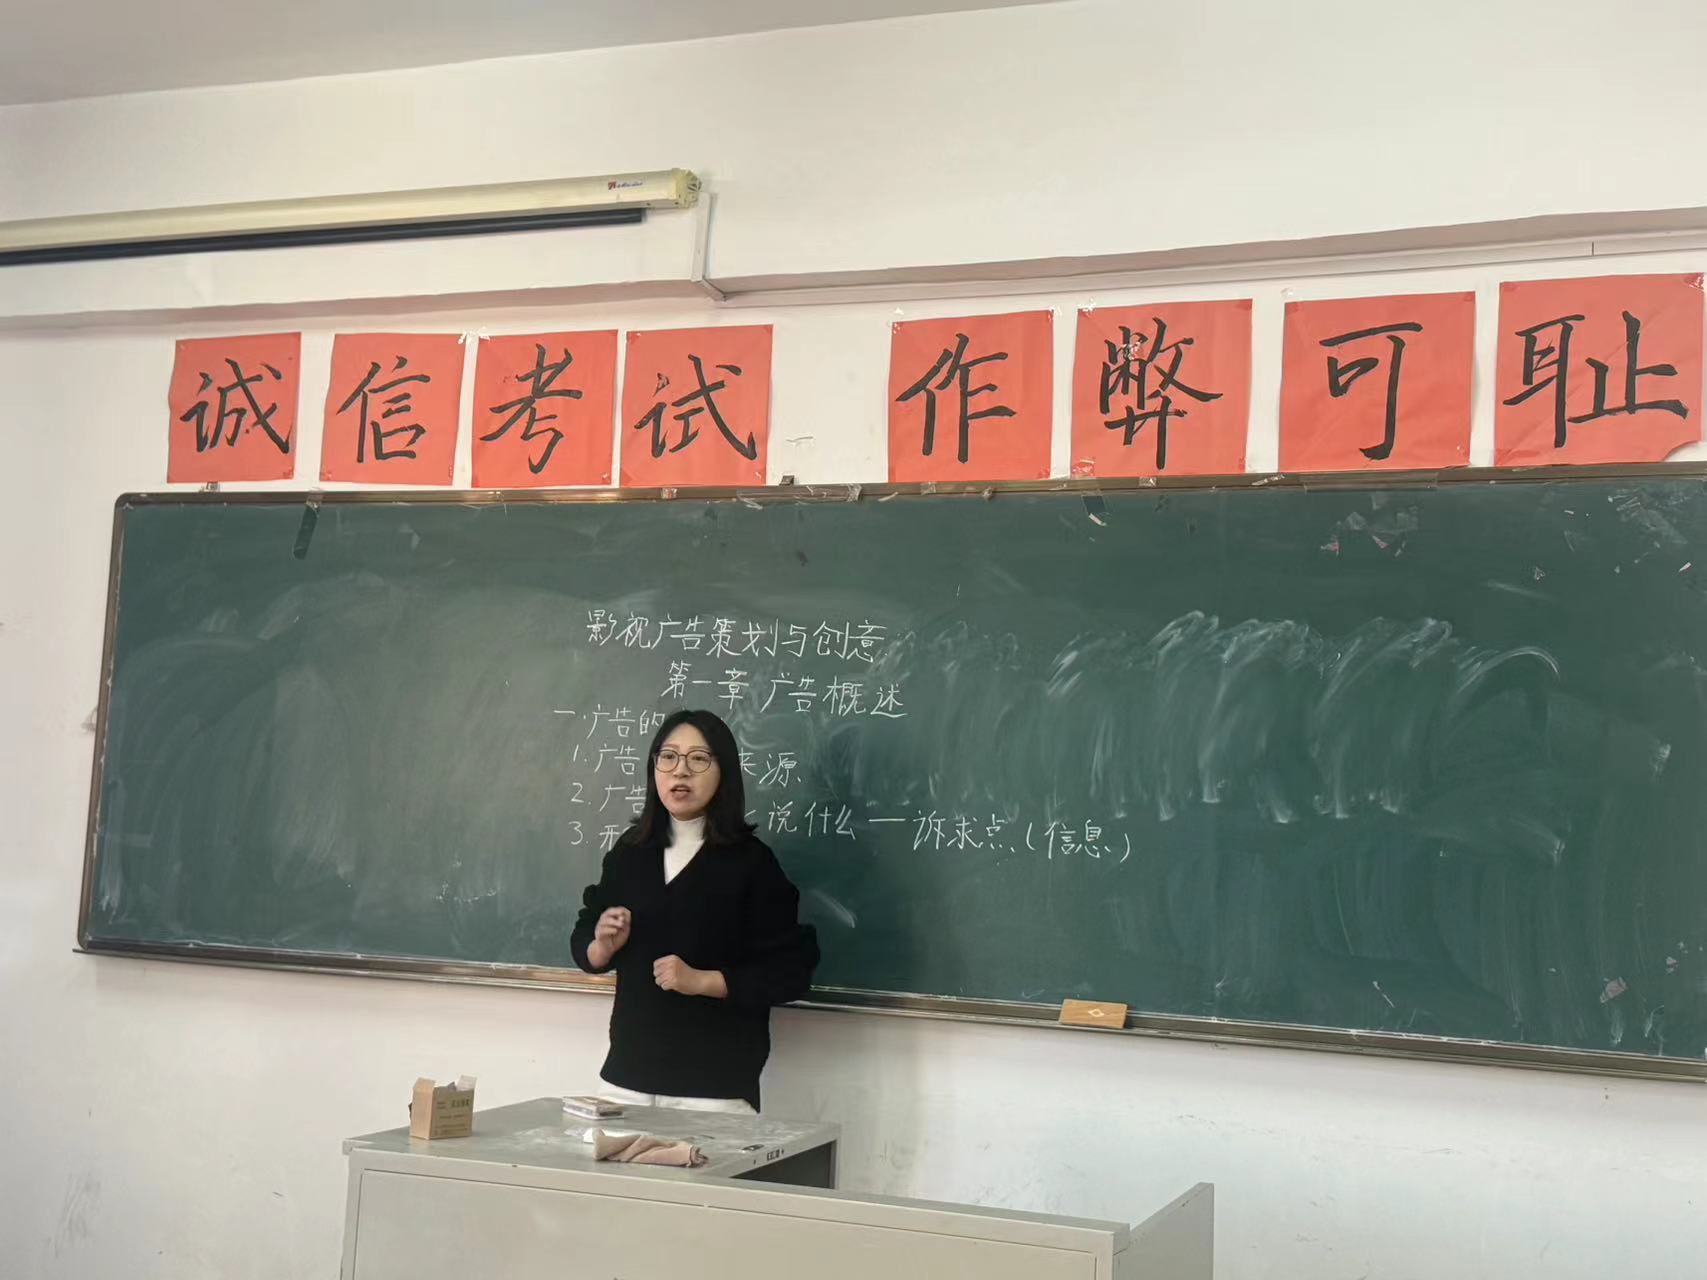 诚信考试 作弊可耻
影视广告策划与创意
第一章 广告概述
一.广告的
1.广告 来源
2.广告
3. 说什么—诉求点(信息)